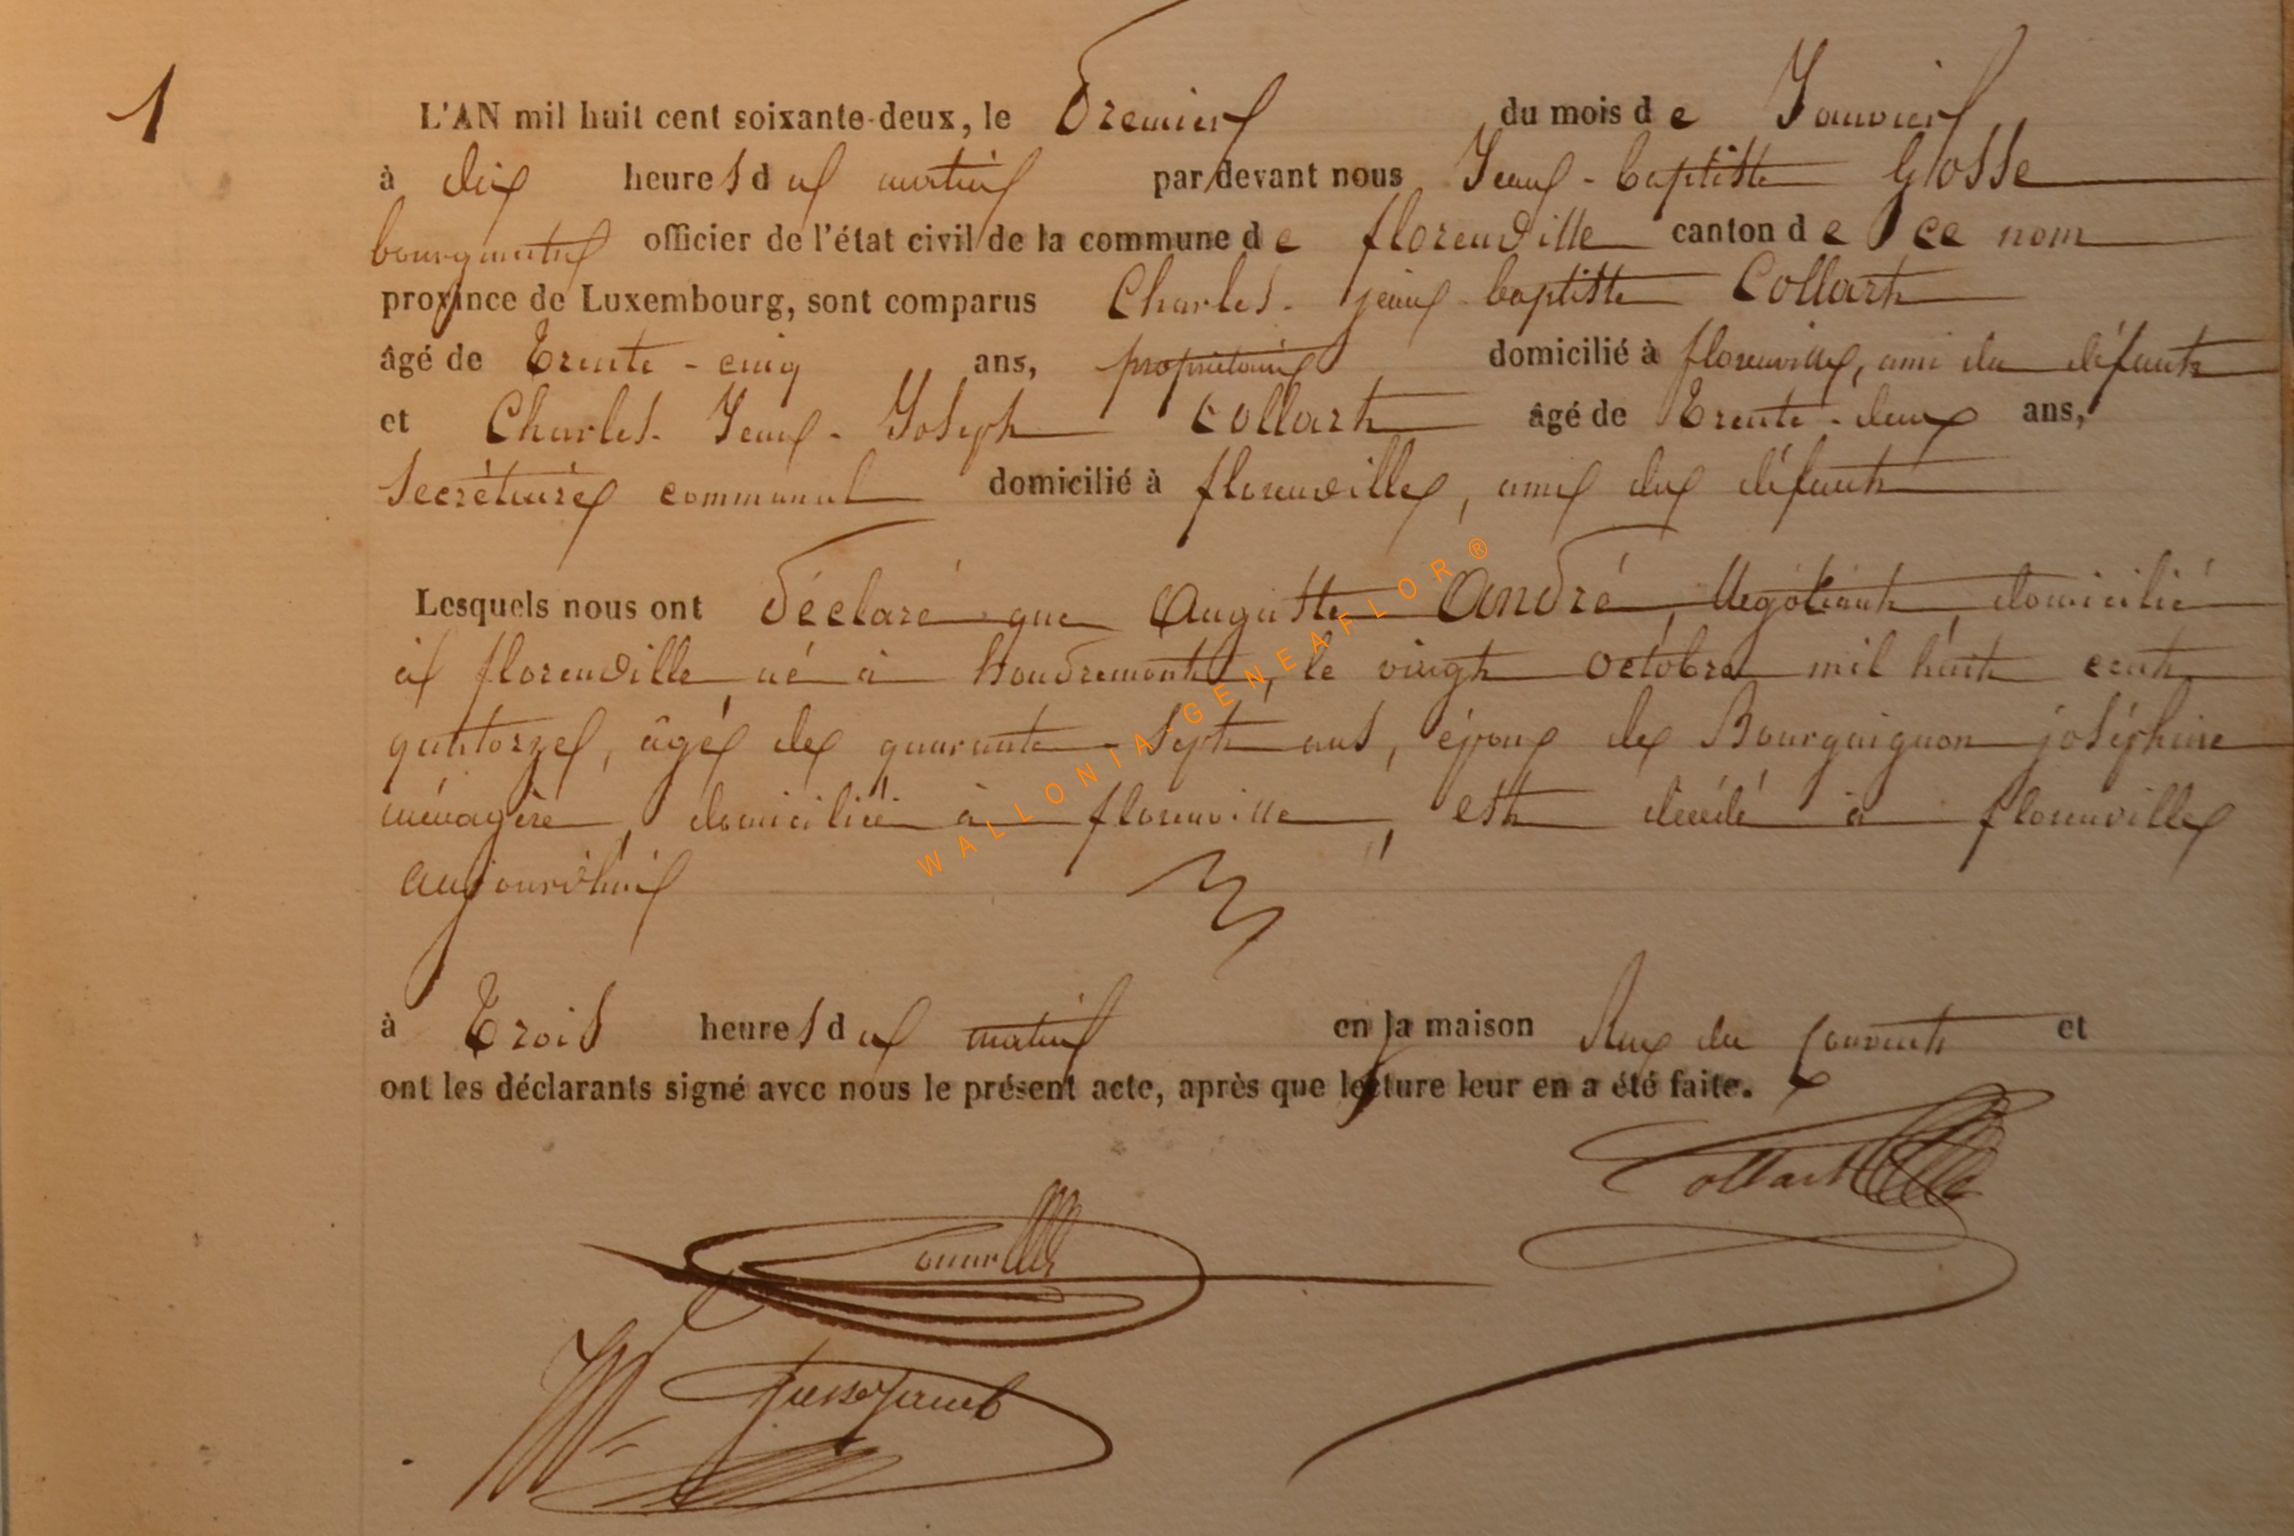 1
L'AN mil huit cent soixante-deux, le Premier du mois de Janvier
à dix heures du matin par devant nous Jean-baptiste Glosse
bourgmestre officier de l'état civil de la commune de florenville canton de ce nom
province de Luxembourg, sont comparus Charles-jean-baptiste Collart
âgé de Trente-cinq ans, propriétaire domicilié à florenville, ami du défunt
et Charles-Jean-Joseph Collart âgé de Trente-deux ans,
Secrétaire communal domicilié à florenville, ami du défunt
Lesquels nous ont déclaré que Auguste André, Négociant, domicilié
à florenville, né à houdremont, le vingt octobre mil huit cent
quatorze, âgé de quarante-sept ans, époux de Bourguignon joséphine
ménagère, domiciliée à florenville, est décédé à florenville
aujourd'hui
à Trois heures du matin en la maison Rue du Couvent et
ont les déclarants signé avec nous le présent acte, après que lecture leur en a été faite.
Collart
WALLONIA-GENEAFLOR ®